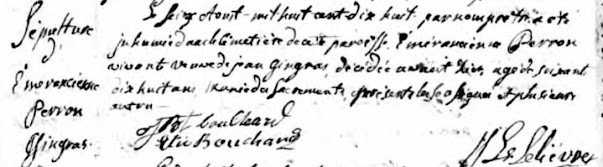 Sépulture
Emérancienne
Perron
Gingras
Le seize Aoust mil huit cent dix huit par nous prêtre a été
inhumé dans le cimetière de cette paroisse Emérancienne Perron
vivant veuve de jean Gingras, décédée avant hier, agée de soixante
dix huit ans, munie des Sacrements, présents et plusieurs
autres
Bouchard
Le Lievre